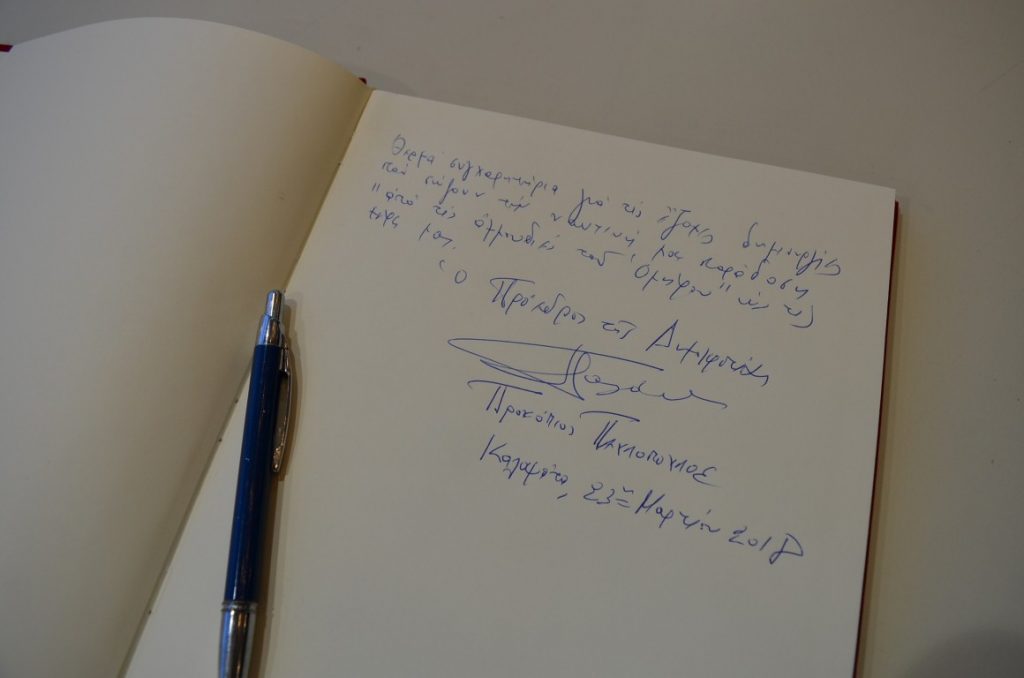 Θερμά συγχαρητήρια γιά τίς δημιουργίες
πού σώζουν τήν ναυτική μας παράδοση
"ἀπό τίς τοῦ Ὁμήρου" ὡς τίς
μας.
Ὁ Πρόεδρος τῆς Δημοκρατίας
Προκόπιος Παυλοπουλος
Καλαμάτα, 23η Μαρτίου 2018